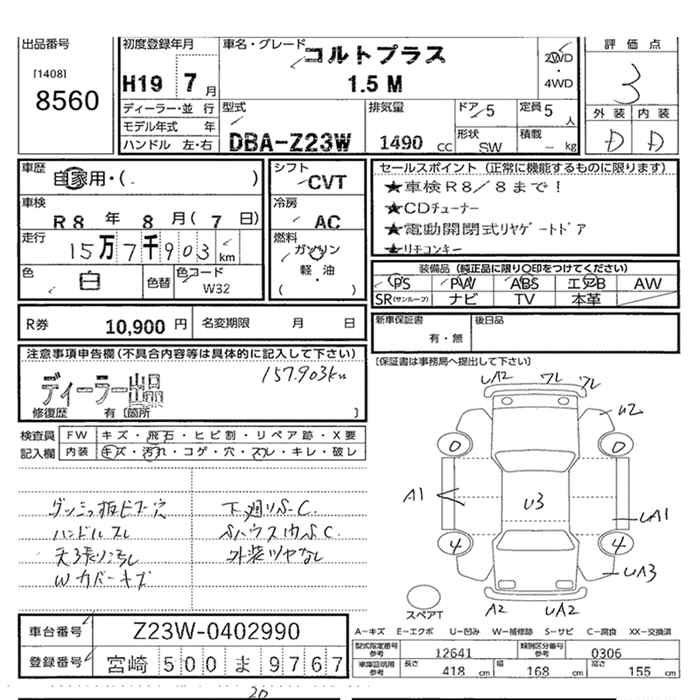 出品番号
[1408]
8560
初度登録年月
H19 7 月
車名・グレード
コルトプラス
1.5 M
2WD
・
4WD
評価点
3
外装 内装
D D
ディーラー・並行
モデル年式 年
ハンドル 左・右
型式
DBA-Z23W
排気量
1490 cc
ドア 5
形状 SW
定員 5 人
積載 - kg
車歴
自家用・( )
車検
R8 年 8 月 ( 7 日)
走行
15万7千903 km
色 白 色替
色コード W32
シフト
CVT
冷房
AC
燃料
ガソリン
軽・油
( )
セールスポイント (正常に機能するものに限ります)
★車検R8/8まで!
★CDチューナー
★電動開閉式リヤゲートドア
★リモコンキー
装備品 (純正品に限り○印をつけてください)
PS PW ABS エアB AW
SR(サンルーフ) ナビ TV 本革
R券 10,900 円 名変期限 月 日
新車保証書 有・無 後日品
[保証書は事務局へ提出して下さい]
注意事項申告欄(不具合内容等は具体的に記入して下さい)
157.903km
ディーラー山口
修復歴 有[箇所 ]
検査員 FW キズ・飛石・ヒビ割・リペア跡・X要
記入欄 内装 キズ・汚れ・コゲ・穴・スレ・キレ・破レ
ダッシュ板ビス穴 下廻りS.C.
ハンドルスレ Sハウス内S.C.
天張り汚れ 外装ツヤなし
Wカバーキズ
UA2 フレ フレ
U2
0 0
A1 U3 UA1
4 4
UA3
スペアT A2 UA2
車台番号 Z23W-0402990
登録番号 宮崎 500 ま 9767
A-キズ E-エクボ U-凹み W-補修跡 S-サビ C-腐食 XX-交換済
型式指定番号 参考 12641 類別区分番号 参考 0306
車庫証明用 参考 長さ 418 cm 幅 168 cm 高さ 155 cm
20